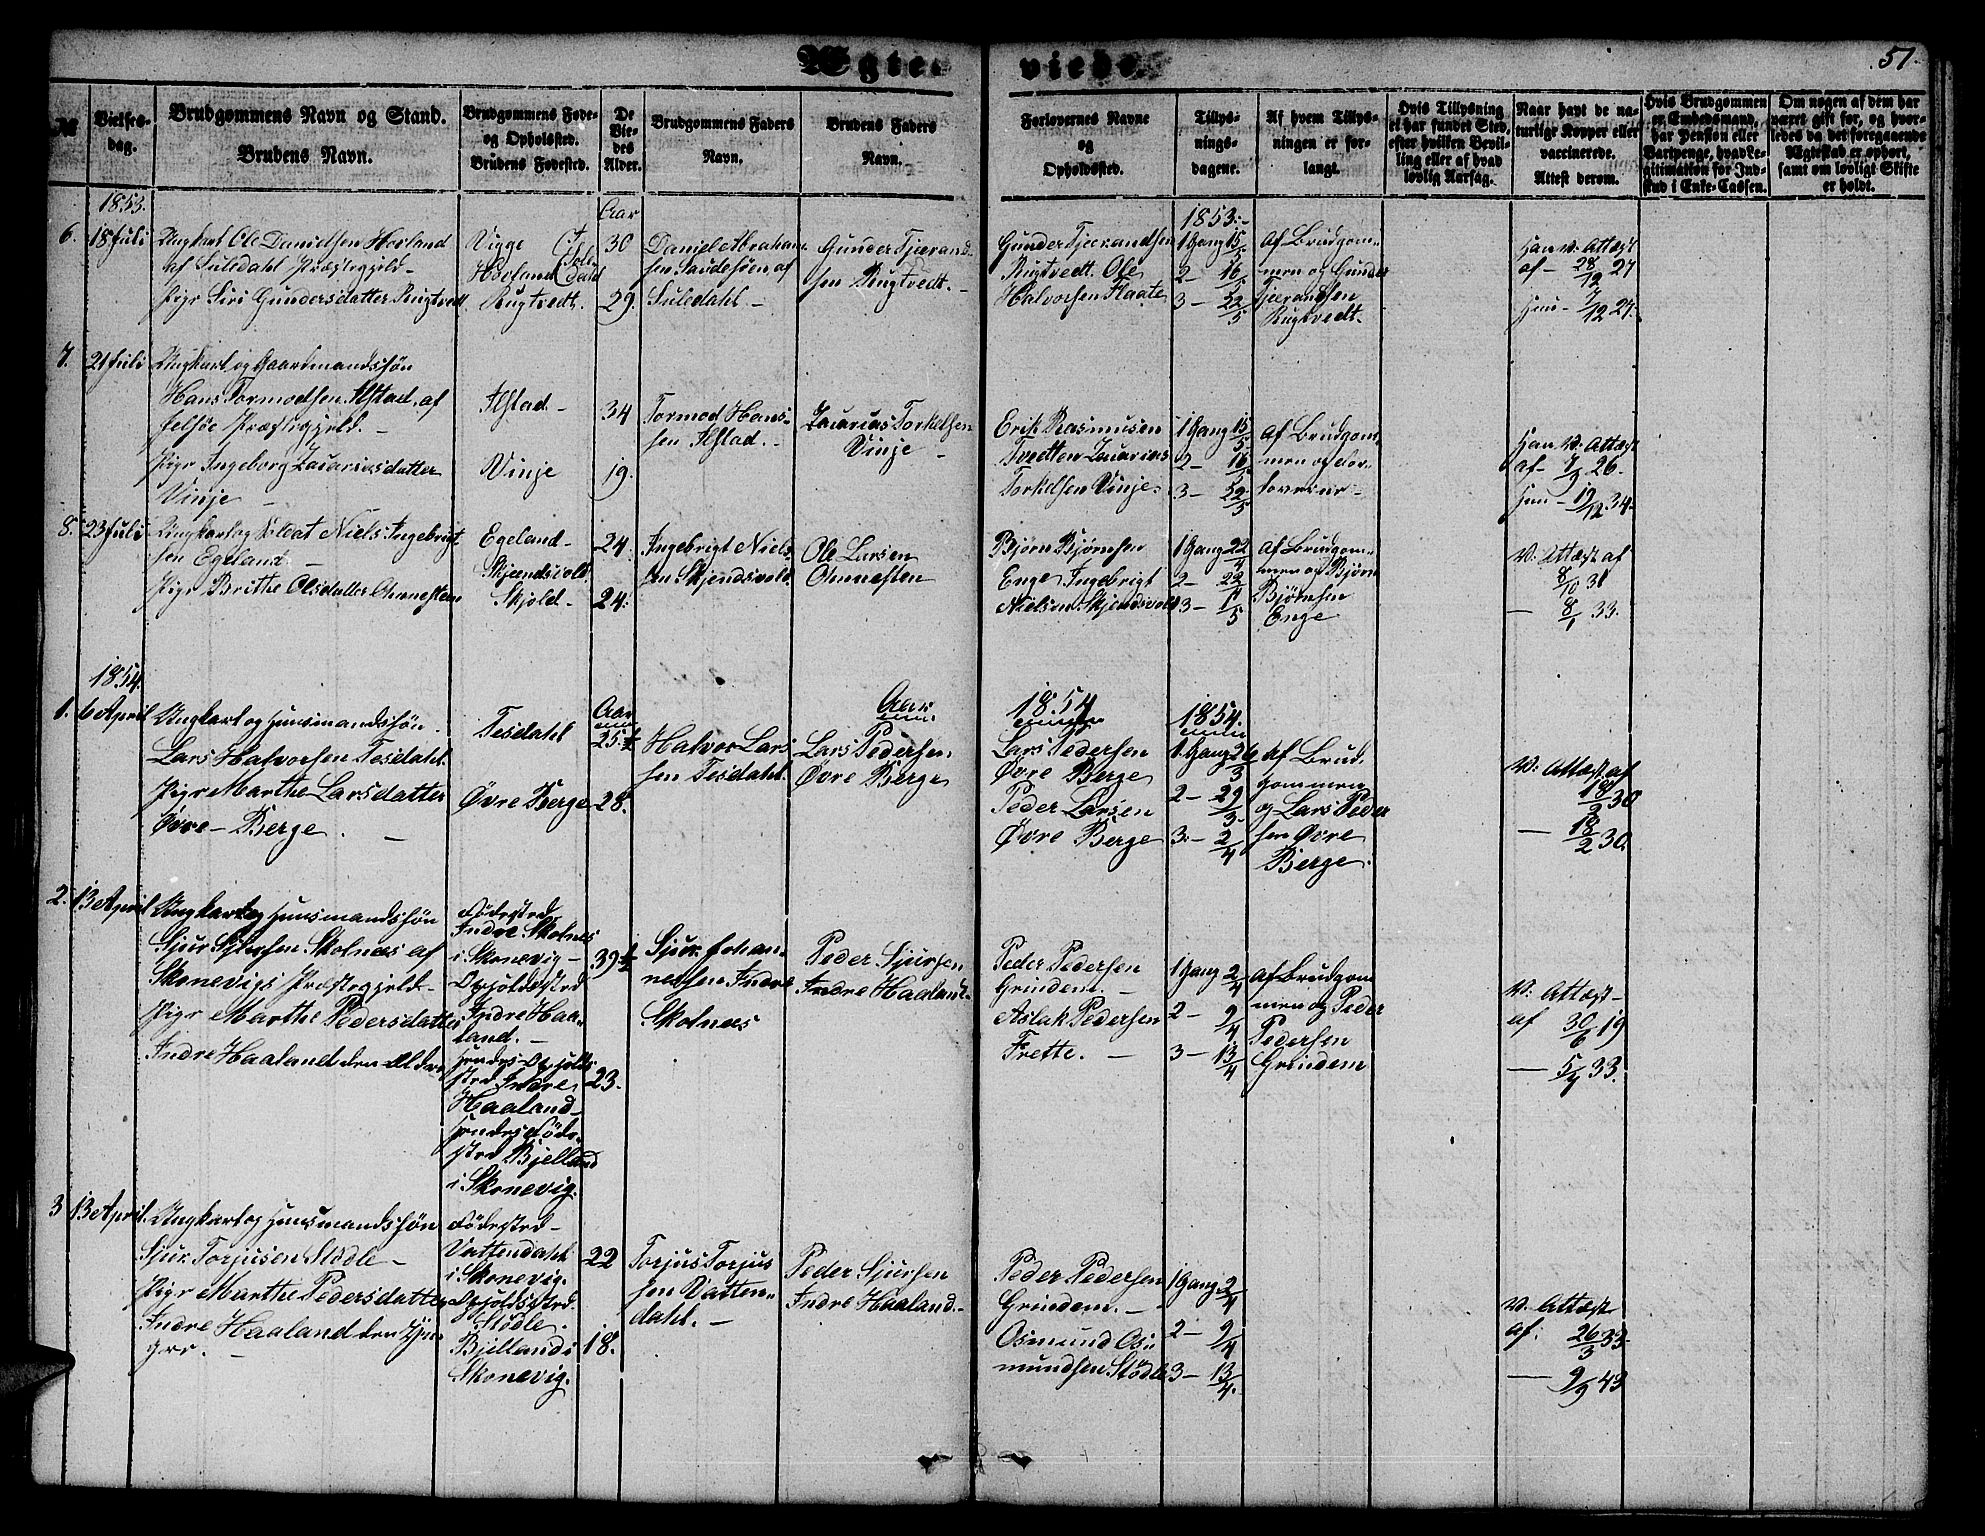 Ægte-
viede.
51.
№
Vielses-
dag.
Brudgommens Navn og Stand.
Brudens Navn.
Brudgommens Føde-
og Opholdsted.
Brudens Fødested.
De
Vie-
des
Alder.
Brudgommens Faders
Navn.
Brudens Faders
Navn.
Forlovernes Navne
og
Opholdssted.
Tillys-
nings-
dagene.
Af hvem Tillys-
ningen er for-
langt.
Hvis Tillysning
ei har fundet Sted,
efter hvilken Bevil-
ling eller af hvad
lovlig Aarsag.
Naar havt de na-
turlige Kopper eller
vaccinerede.
Attest derom.
Hvis Brudgommen
er Embedsmand,
har Pension eller
Vartpenge, hvad Le-
gitimation for Ind-
skud i Enke-Cassen.
Om nogen af dem har
været gift for, og hvor-
ledes da det foregaaende
Ægteskab er ophørt,
samt om lovligt Skifte
er holdt.
1853.
6.
18 Juli
Ungkarl Ole Danielsen Hovland
af Suledahl Præstegjeld-
Pige Siri Gundersdatter Rugtvedt
Vigge
Hovland
Rugtvedt.
Aar
30
29.
Daniel Abraham-
sen af
Suledahl-
Gunder Tjerand-
sen Rugtvedt.-
Gunder Tjerandsen
Rugtvedt. Ole
Halvorsen Flaate
1853.-
1 Gang 15/5
2- 16/5
3- 22/5
Af Brudgom-
men og Gunder
Tjerandsen
Rugtvedt.
Han v. Attest
af- 28/12 27
Hun- 7/12 27.
7.
21 Juli
Ungkarl og Gaardmandssøn
Hans Tormodsen Ilstad. af
Jelsøe Præstegjeld.-
Pige Ingeborg Zacariasdatter
Vinje-
Ilstad-
Vinje
34
19.
Tormod Hans-
sen Ilstad.-
Zacarias Torkelsen
Vinje-
Erik Rasmusen
Tvedten Zacarias
Torkelsen Vinje.
1 Gang 15/5
2- 16/5
3- 22/5
Af Brudgom-
men og For-
loverne-
Han v. Attest
af- 7/9 26.
Hun- 19/12 34.
8.
23 Juli
Ungkarl og Soldat Niels Ingebrigt-
sen Egeland.-
Pige Brithe Olsdatter Ommesten
Egeland-
Skjendsvold
Skjold-
24.
24.
Ingebrigt Niels-
sen Skjendsvold.
Ole Larsen
Ommesten
Bjørn Bjørnsen
Enge. Ingebrigt
Nielsen Skjendsvold
1 Gang 22/4
2- 22/4
3- 1/5
Af Brudgom-
men og Bjørn
Bjørnsen
Enge
v: Attest af
8/10 31
- 8/1 33.
1854.
1.
6 April
Ungkarl og Huusmandssøn.
Lars Halvorsen Tesdahl.
Pige Marthe Larsdatter
Øvre-Berge.-
Tesdahl
Øvre Berge
Aar
25½
28.
Halvor Lars-
sen Tesdahl.
Aar
Lars Pedersen
Øvre Berge
1854
Lars Pedersen
Øvre Berge
Peder Larsen
Øvre Berge
1854.
1 Gang 26/3
2- 29/3.
3.- 2/4
Af Brud-
gommen
og Lars Peder-
sen Øvre
Berge.
v: Attest af
18/2 30
- 18/2 30.
2.
13 April
Ungkarl og Huusmandssøn
Sjur Sjursen Skolnæs af
Skonevigs Præstegjeld-
Pige Marthe Pedersdatter
Indre Haaland den Eldre
Fødested
Indre Skolnes
i Skonevig-
Opholdssted
Indre Haa-
land.-
Hendes Opholds-
sted Indre
Haaland-
Hendes Føde-
sted Bjelland
i Skonevig.
39½
23.
Sjur Johan-
nessen Indre
Skolnæs
Peder Sjursen
Indre Haaland-
Peder Pedersen
Grindem.-
Aslak Pedersen
Frette.-
1 Gang 2/4
2- 9/4
3- 13/4
af Brudgom-
men og Peder
Pedersen
Grindem
v: Attest-
af 30/6 19
- 5/7 33.
3
13 April.
Ungkarl og Huusmandssøn
Sjur Torjusen Stødle-
Pige Marthe Pedersdatter
Indre Haaland den Yn-
gre.-
Fødested-
Vattendahl
i Skonevig.
Opholdssted.
Stødle.
Bjelland i
Skonevig.
22
18.
Torjus Torjus-
sen Vatten-
dahl.-
Peder Sjursen
Indre Haaland.-
Peder Pedersen
Grindem.-
Osmund Os-
mundsen Stødle
1 Gang 2/4
2- 9/4
3- 13/4.
v. Attest
af: 26/3 33
- 9/9 43